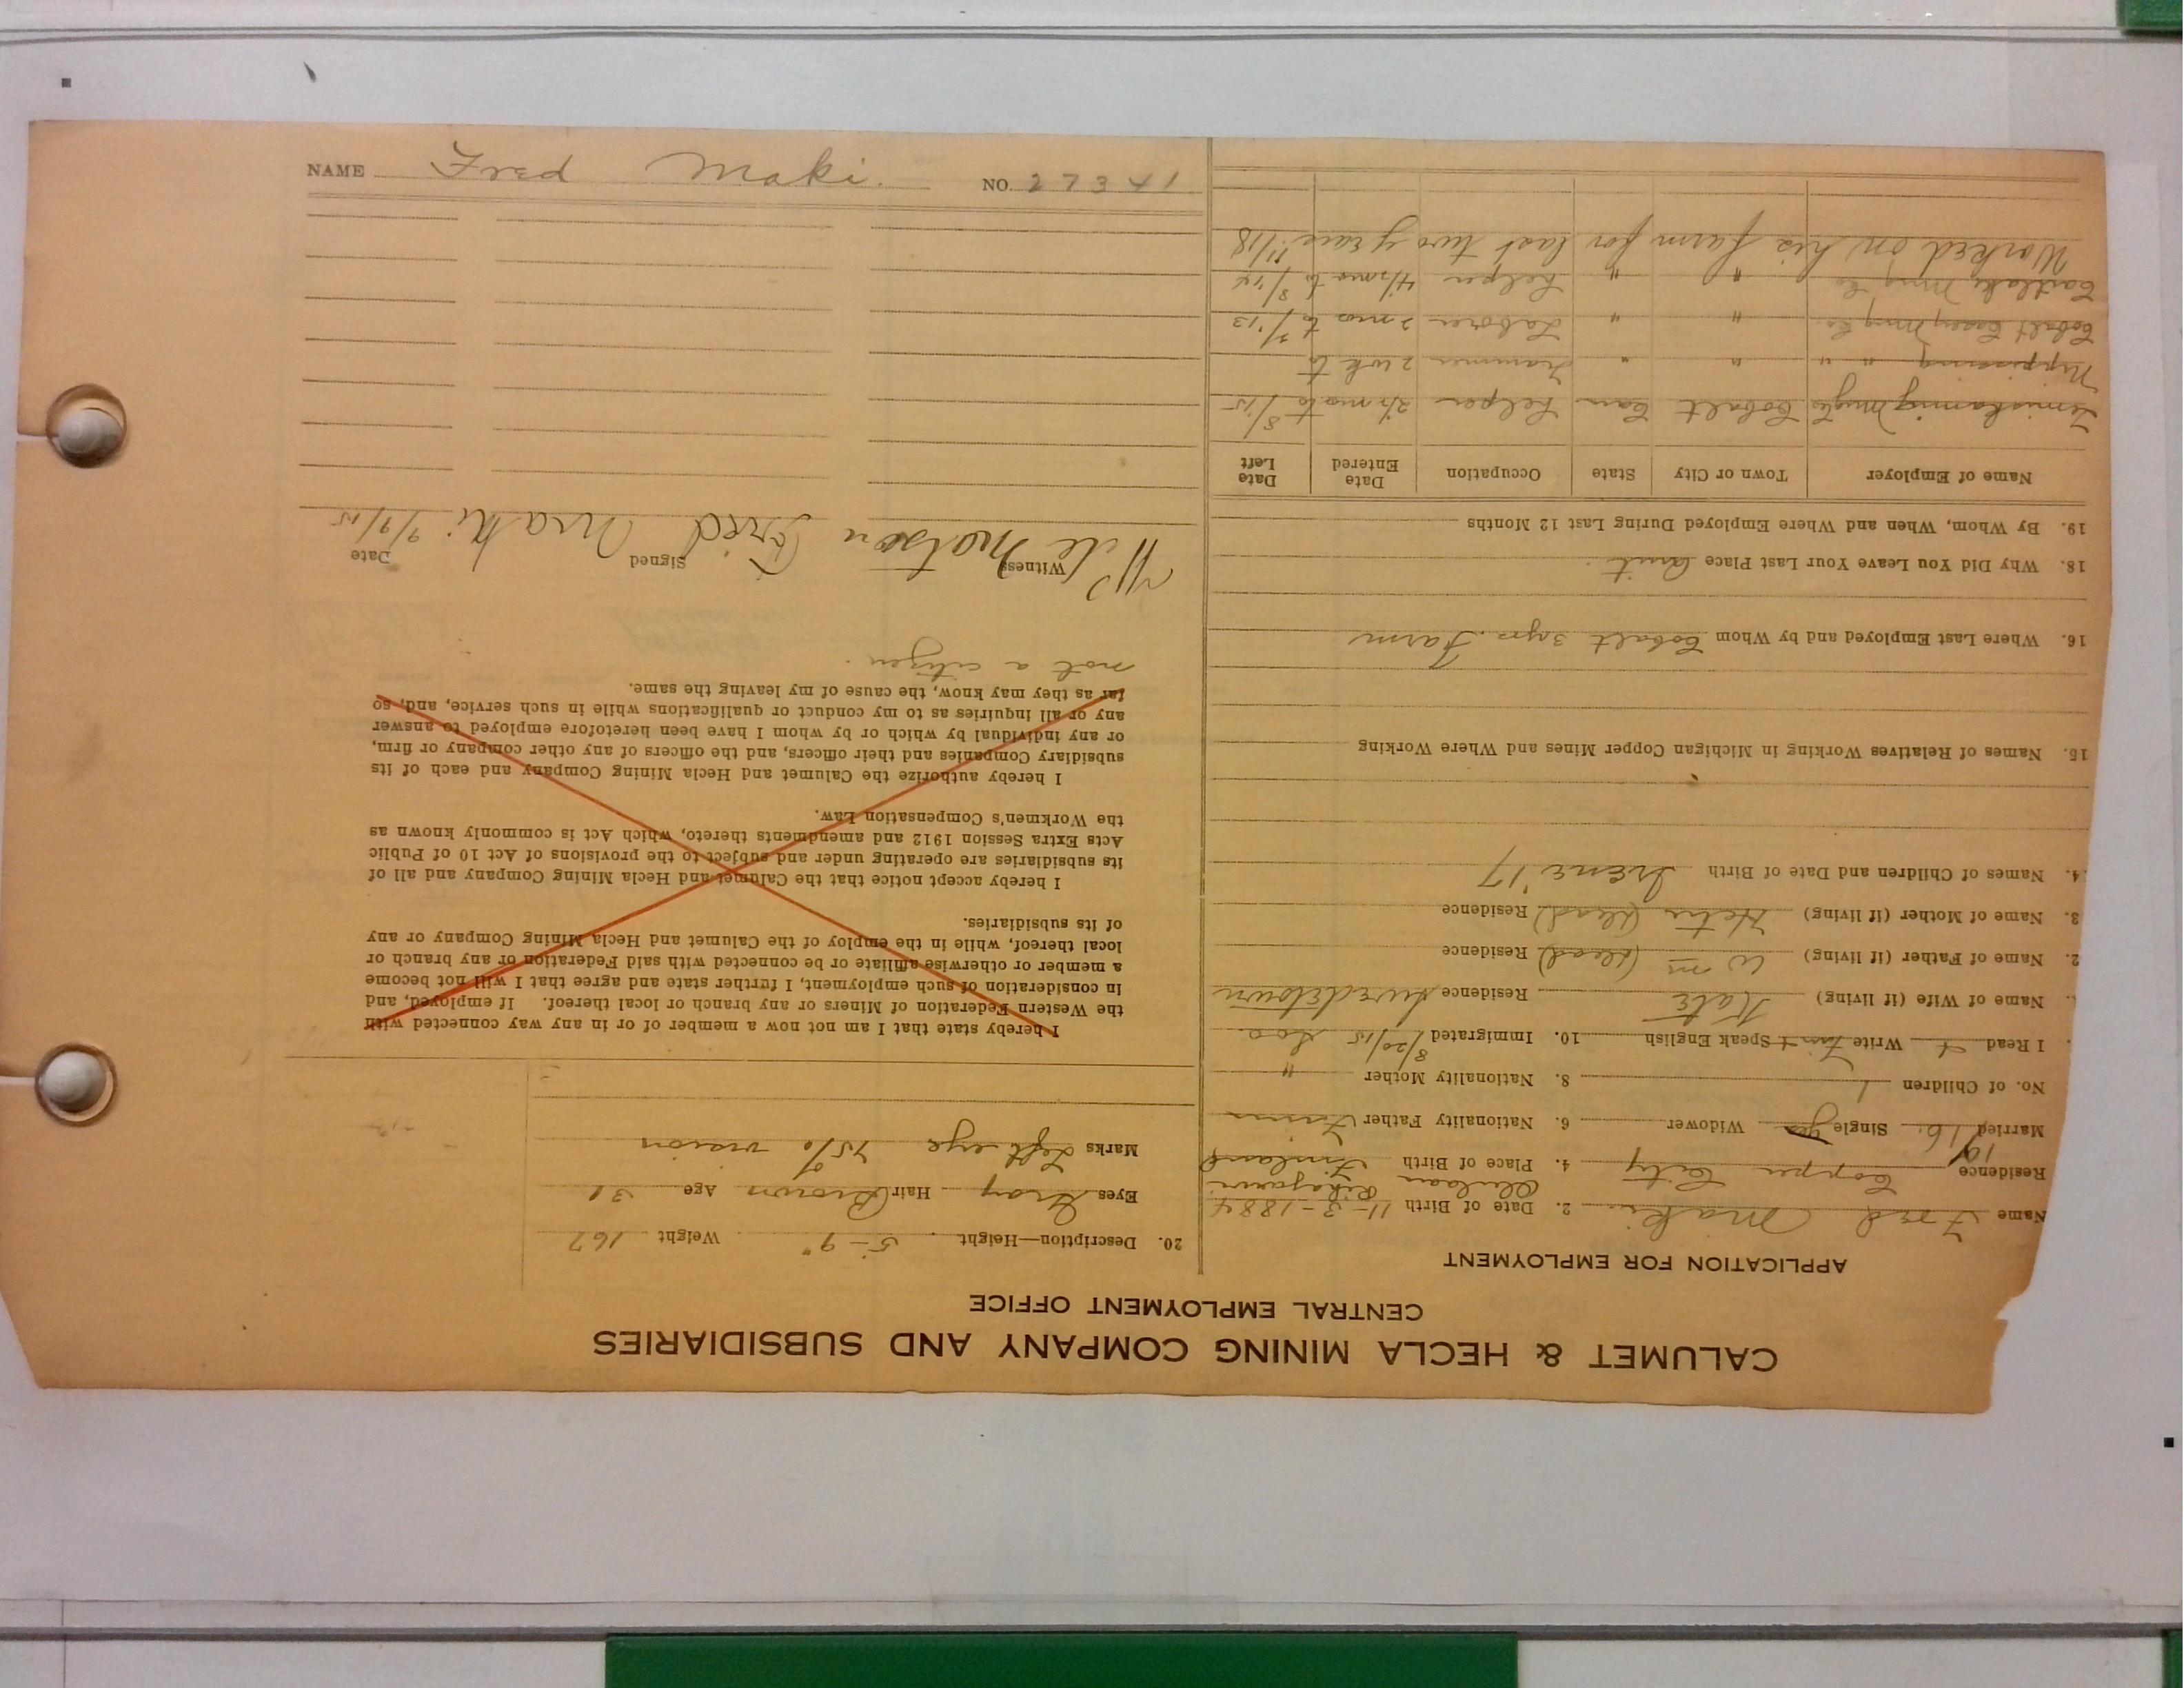 CALUMET & HECLA MINING COMPANY AND SUBSIDIARIES
CENTRAL EMPLOYMENT OFFICE
APPLICATION FOR EMPLOYMENT
Name Fred Maki 2. Date of Birth 11-3-1884
Residence Copper City 4. Place of Birth Finland
Married 1916 Single yes Widower 6. Nationality Father Finn
No. of Children 1 8. Nationality Mother "
I Read Write Finn Speak English 10. Immigrated 8/20/15 Soo
Name of Wife (if living) Kate Residence Swedetown
2. Name of Father (if living) Wm (dead) Residence
3. Name of Mother (if living) (dead) Residence
4. Names of Children and Date of Birth Irene '17
15. Names of Relatives Working in Michigan Copper Mines and Where Working
16. Where Last Employed and by Whom Cobalt 3 yrs. Farm
18. Why Did You Leave Your Last Place Quit.
19. By Whom, When and Where Employed During Last 12 Months
Name of Employer Town or City State Occupation Date Entered Date Left
Temiskaming Mng Co Cobalt Can helper 2½ mo to 8/15
Nipissing " " " " Trammer 2 wk to
Cobalt Mng Co. " " Laborer 2 mos to 7/'13
Mng Co " " helper 4½ mo to 8/'14
Worked on his farm for last two years 11/18
20. Description—Height 5-9" Weight 167
Eyes Gray Hair Brown Age 31
Marks Left eye 75% vision
I hereby state that I am not now a member of or in any way connected with
the Western Federation of Miners or any branch or local thereof. If employed, and
in consideration of such employment, I further state and agree that I will not become
a member or otherwise affiliate or be connected with said Federation or any branch or
local thereof, while in the employ of the Calumet and Hecla Mining Company or any
of its subsidiaries.
I hereby accept notice that the Calumet and Hecla Mining Company and all of
its subsidiaries are operating under and subject to the provisions of Act 10 of Public
Acts Extra Session 1912 and amendments thereto, which Act is commonly known as
the Workmen's Compensation Law.
I hereby authorize the Calumet and Hecla Mining Company and each of its
subsidiary Companies and their officers, and the officers of any other company or firm,
or any individual by which or by whom I have been heretofore employed to answer
any or all inquiries as to my conduct or qualifications while in such service, and, so
far as they may know, the cause of my leaving the same.
not a citizen.
Witness Matson Signed Fred Maki Date 9/9/15
NAME Fred Maki. NO. 27341